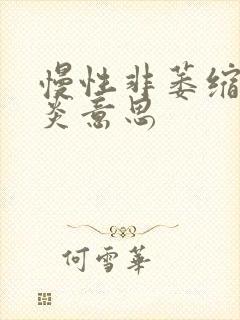 慢性非萎缩
炎意思
何雪華